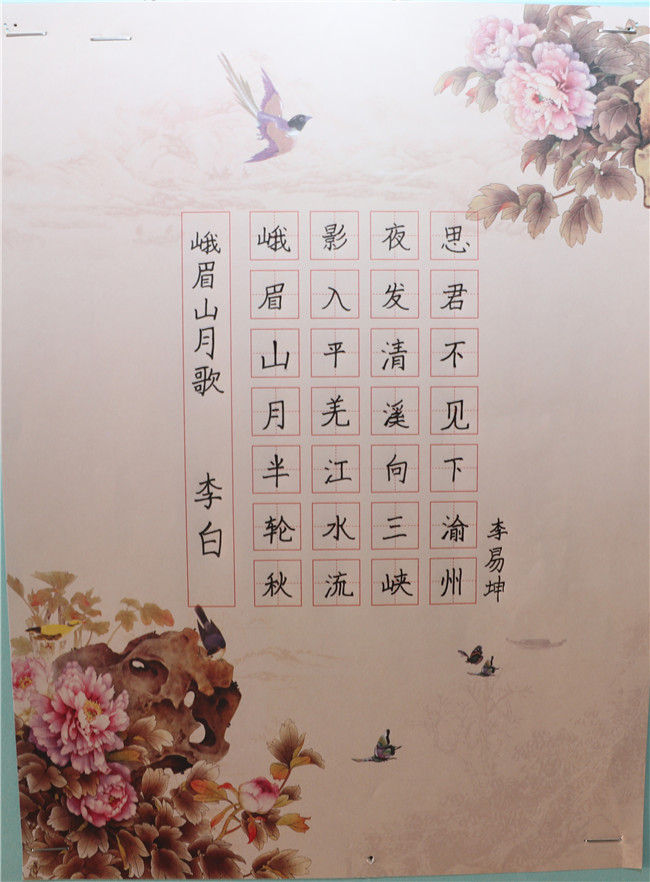 峨眉山月歌 李白
峨眉山月半轮秋
影入平羌江水流
夜发清溪向三峡
思君不见下渝州
李易坤